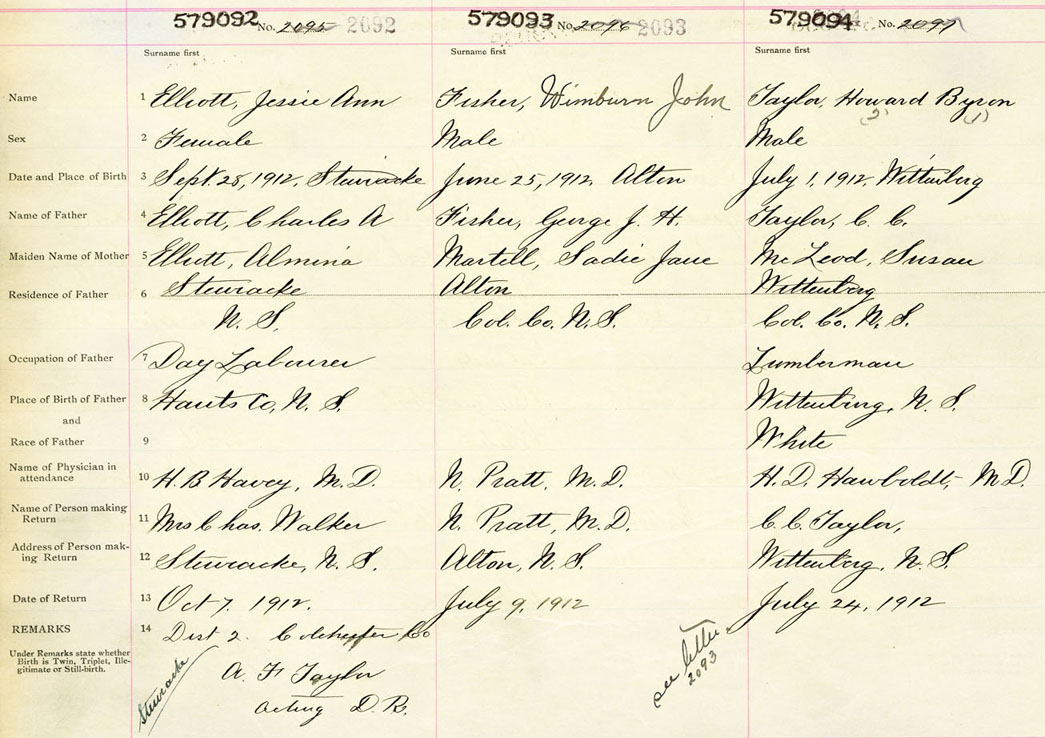 579092 No. 2095 2092 579093 No. 2096 2093 579094 No. 2097
Surname first Surname first Surname first
Name 1 Elliott, Jessie Ann Fisher, Wimburn John Taylor, Howard Byron
(2) (1)
Sex 2 Female Male Male
Date and Place of Birth 3 Sept. 28, 1912, Stewiacke June 25, 1912, Alton July 1, 1912, Wittenberg
Name of Father 4 Elliott, Charles A Fisher, George J. H. Taylor, C. C.
Maiden Name of Mother 5 Elliott, Almina Martell, Sadie Jane McLeod, Susan
Residence of Father 6 Stewiacke Alton Wittenberg
N. S. Col. Co. N. S. Col. Co. N. S.
Occupation of Father 7 Day Labourer Lumberman
Place of Birth of Father 8 Hants Co, N. S. Wittenburg, N. S.
and
Race of Father 9 White
Name of Physician in
attendance 10 H. B Havey, M. D. N. Pratt, M. D. H. D. Hawboldt, M D.
Name of Person making
Return 11 Mrs Chas. Walker N. Pratt, M. D. C. C. Taylor,
Address of Person mak-
ing Return 12 Stewiacke, N. S. Alton, N. S. Wittenberg, N. S.
Date of Return 13 Oct 7. 1912. July 9, 1912 July 24, 1912
REMARKS 14 Dist 2. Colchester Co
Under Remarks state whether
Birth is Twin, Triplet, Ille-
gitimate or Still-birth.
A. F Taylor
acting D. R.
Stewiacke
see letter
2093